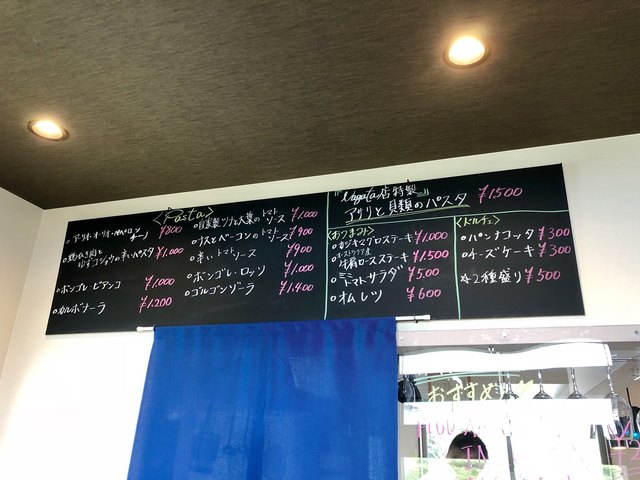 <Pasta>
○アーリオ・オーリオ・ペペロンチーノ ¥800
○鶏ひき肉と
ゆずコショウの辛いパスタ ¥1.000
○ボンゴレ ビアンコ ¥1.000
○カルボナーラ ¥1.200
○自家製ツナと大葉のトマトソース ¥1.000
○ナスとベーコンのトマトソース ¥900
○辛いトマトソース ¥900
○ボンゴレ・ロッソ ¥1.000
○ゴルゴンゾーラ ¥1.400
Nagata店特製
アサリと貝類のパスタ ¥1500
<おつまみ>
○カジキマグロステーキ ¥1,000
○オーストラリア産
牛肩ロースステーキ ¥1,500
○ミニトマトサラダ ¥500
○オムレツ ¥600
<ドルチェ>
○パンナコッタ ¥300
○チーズケーキ ¥300
2種盛り ¥500
おすすめ